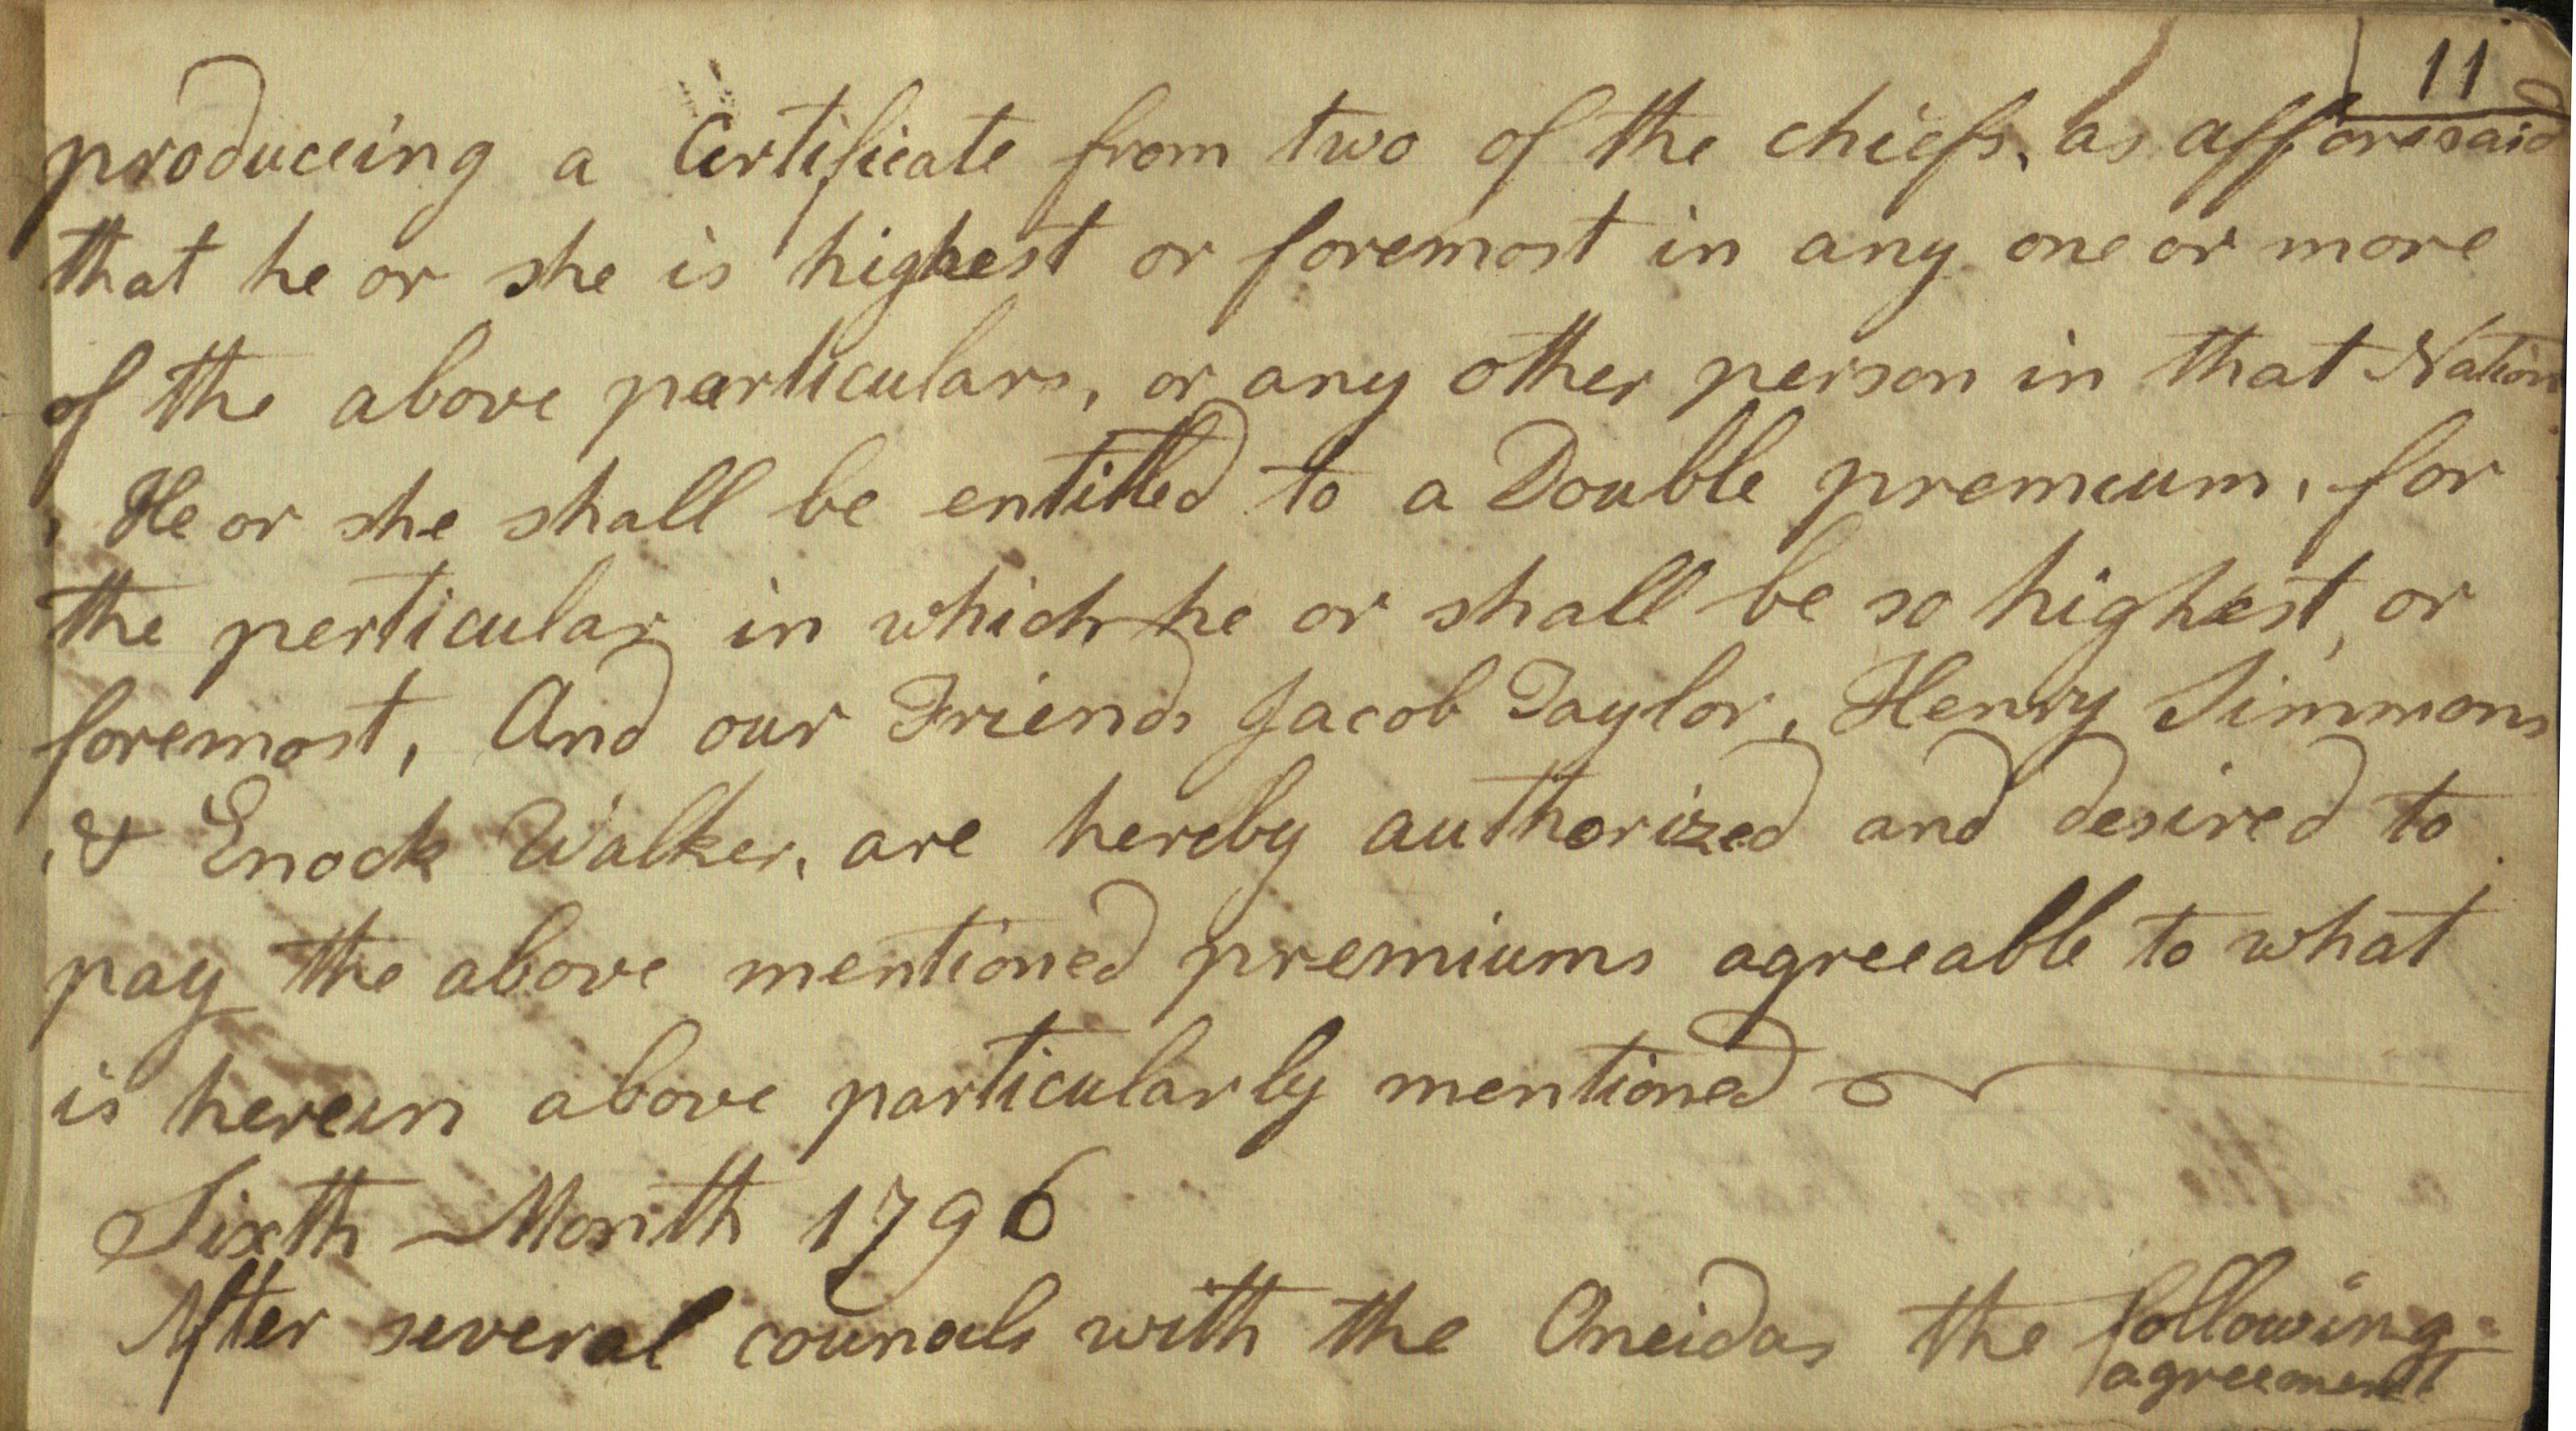 11
produceing a Certificate from two of the chiefs, as afforesaid
that he or she is highest or foremost in any one or more
of the above particulars, or any other person in that Nation
, He or she shall be entitled to a Double premium, for
the perticular in which he or shall be so highest, or
foremost, And our Friends Jacob Taylor, Henry Simmons
, & Enock Walker, are hereby authorized and desired to
pay the above mentioned premiums agreeable to what
is herein above particularly mentioned
Sixth Month 1796
After several councils with the Oneidas the following
agreement